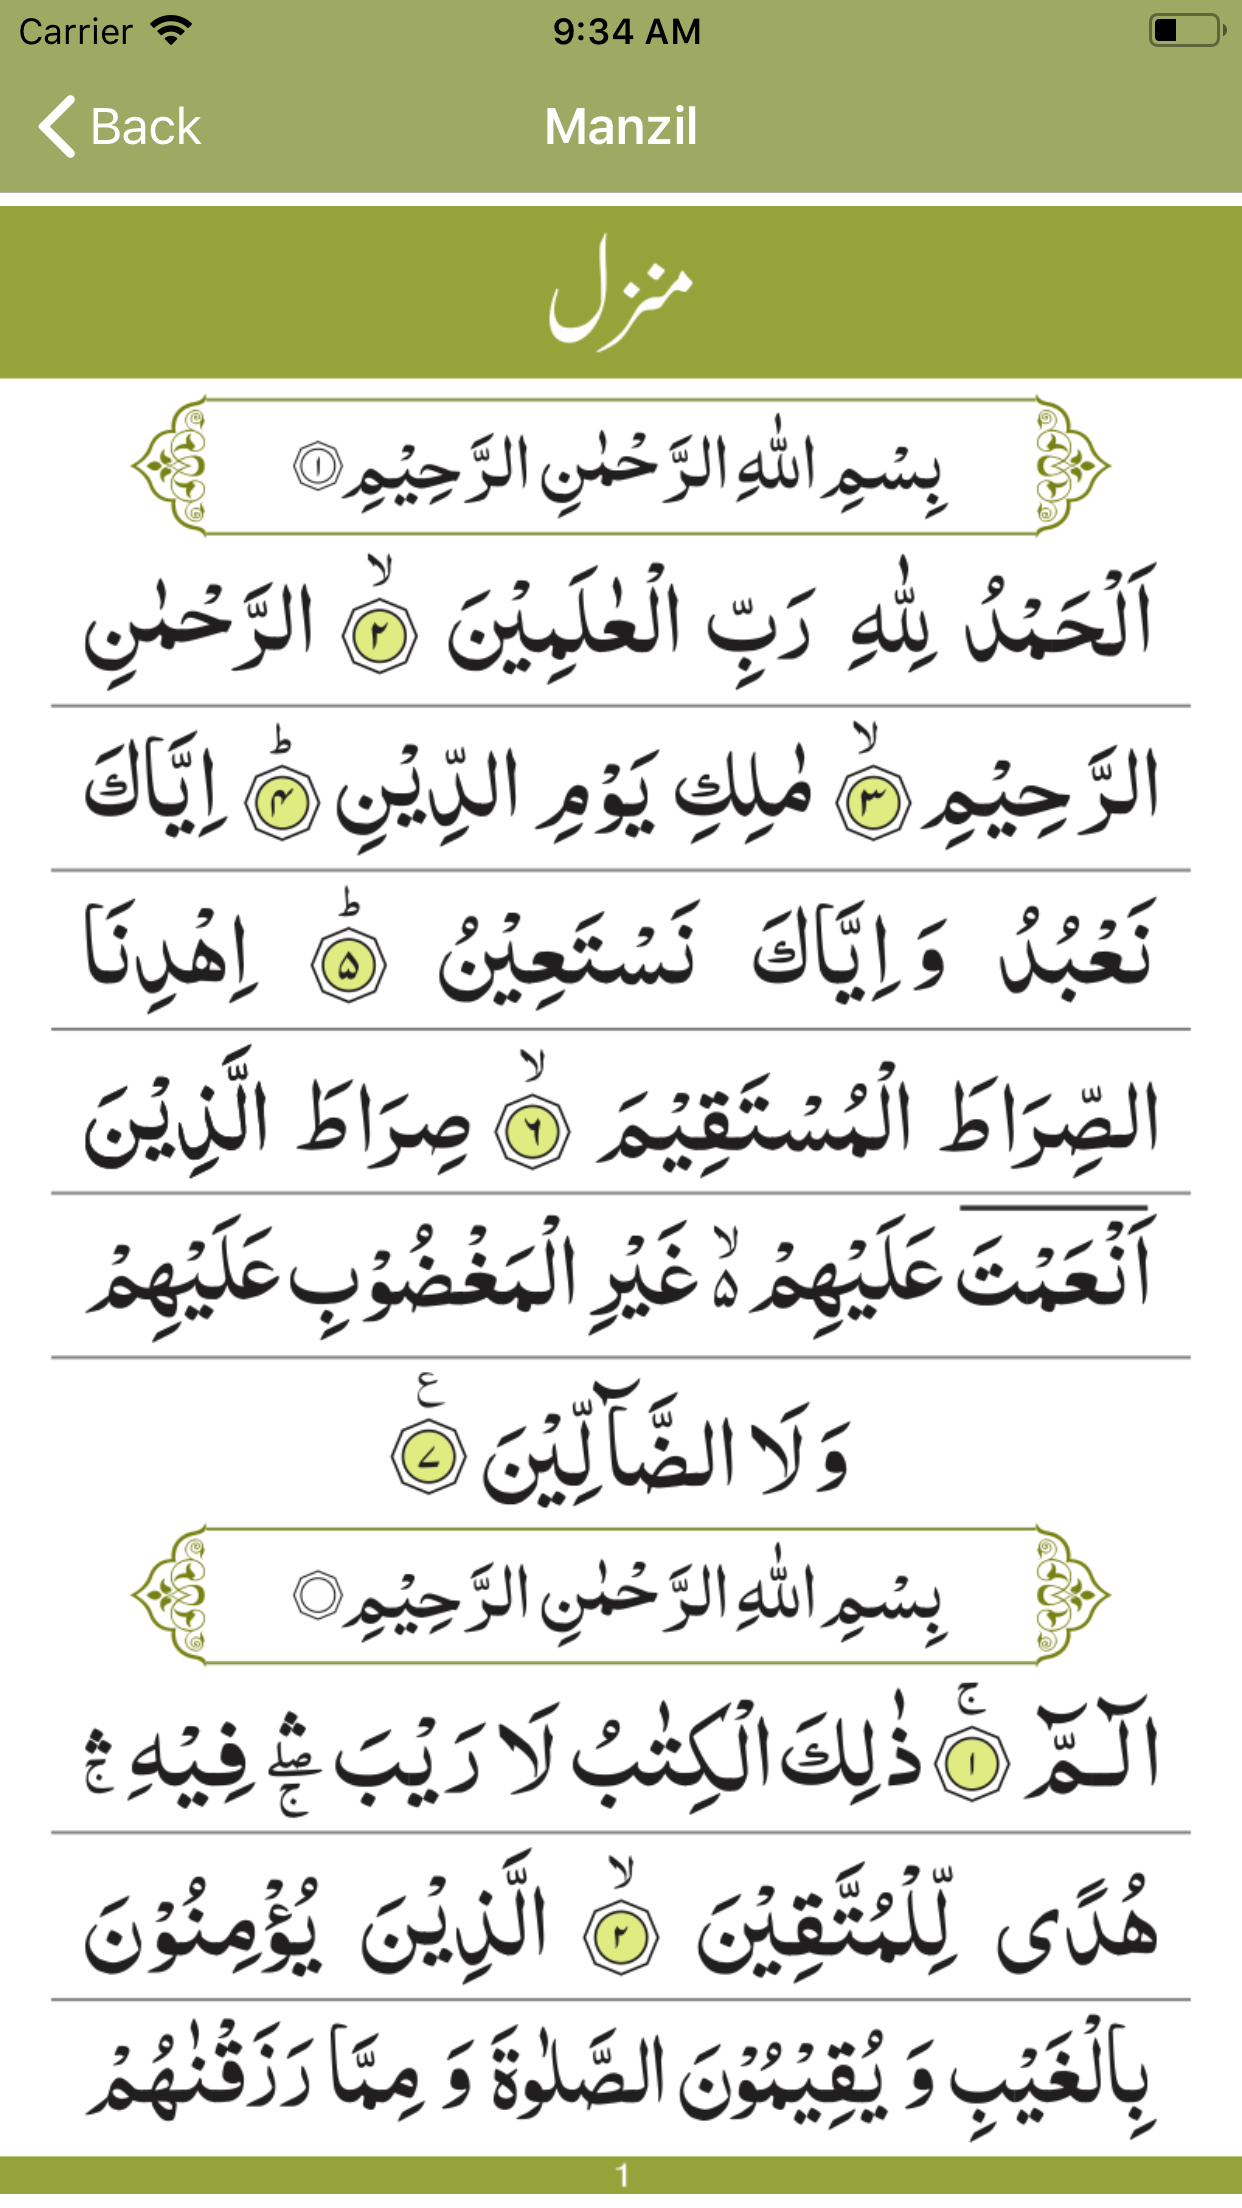 Carrier 9:34 AM
Back Manzil
منزل
بِسْمِ اللّٰهِ الرَّحْمٰنِ الرَّحِيْمِ ۱
اَلْحَمْدُ لِلّٰهِ رَبِّ الْعٰلَمِيْنَ ۙ ۲ الرَّحْمٰنِ
الرَّحِيْمِ ۙ ۳ مٰلِكِ يَوْمِ الدِّيْنِ ؕ ۴ اِيَّاكَ
نَعْبُدُ وَ اِيَّاكَ نَسْتَعِيْنُ ؕ ۵ اِهْدِنَا
الصِّرَاطَ الْمُسْتَقِيْمَ ۙ ۶ صِرَاطَ الَّذِيْنَ
اَنْعَمْتَ عَلَيْهِمْ ۙ۵ غَيْرِ الْمَغْضُوْبِ عَلَيْهِمْ
وَلَا الضَّآلِّيْنَ ع ۷
بِسْمِ اللّٰهِ الرَّحْمٰنِ الرَّحِيْمِ
الٓمّٓ ۚ ۱ ذٰلِكَ الْكِتٰبُ لَا رَيْبَ ۛۖۚ فِيْهِ ۛۚ
هُدًى لِّلْمُتَّقِيْنَ ۙ ۲ الَّذِيْنَ يُؤْمِنُوْنَ
بِالْغَيْبِ وَ يُقِيْمُوْنَ الصَّلٰوةَ وَ مِمَّا رَزَقْنٰهُمْ
1